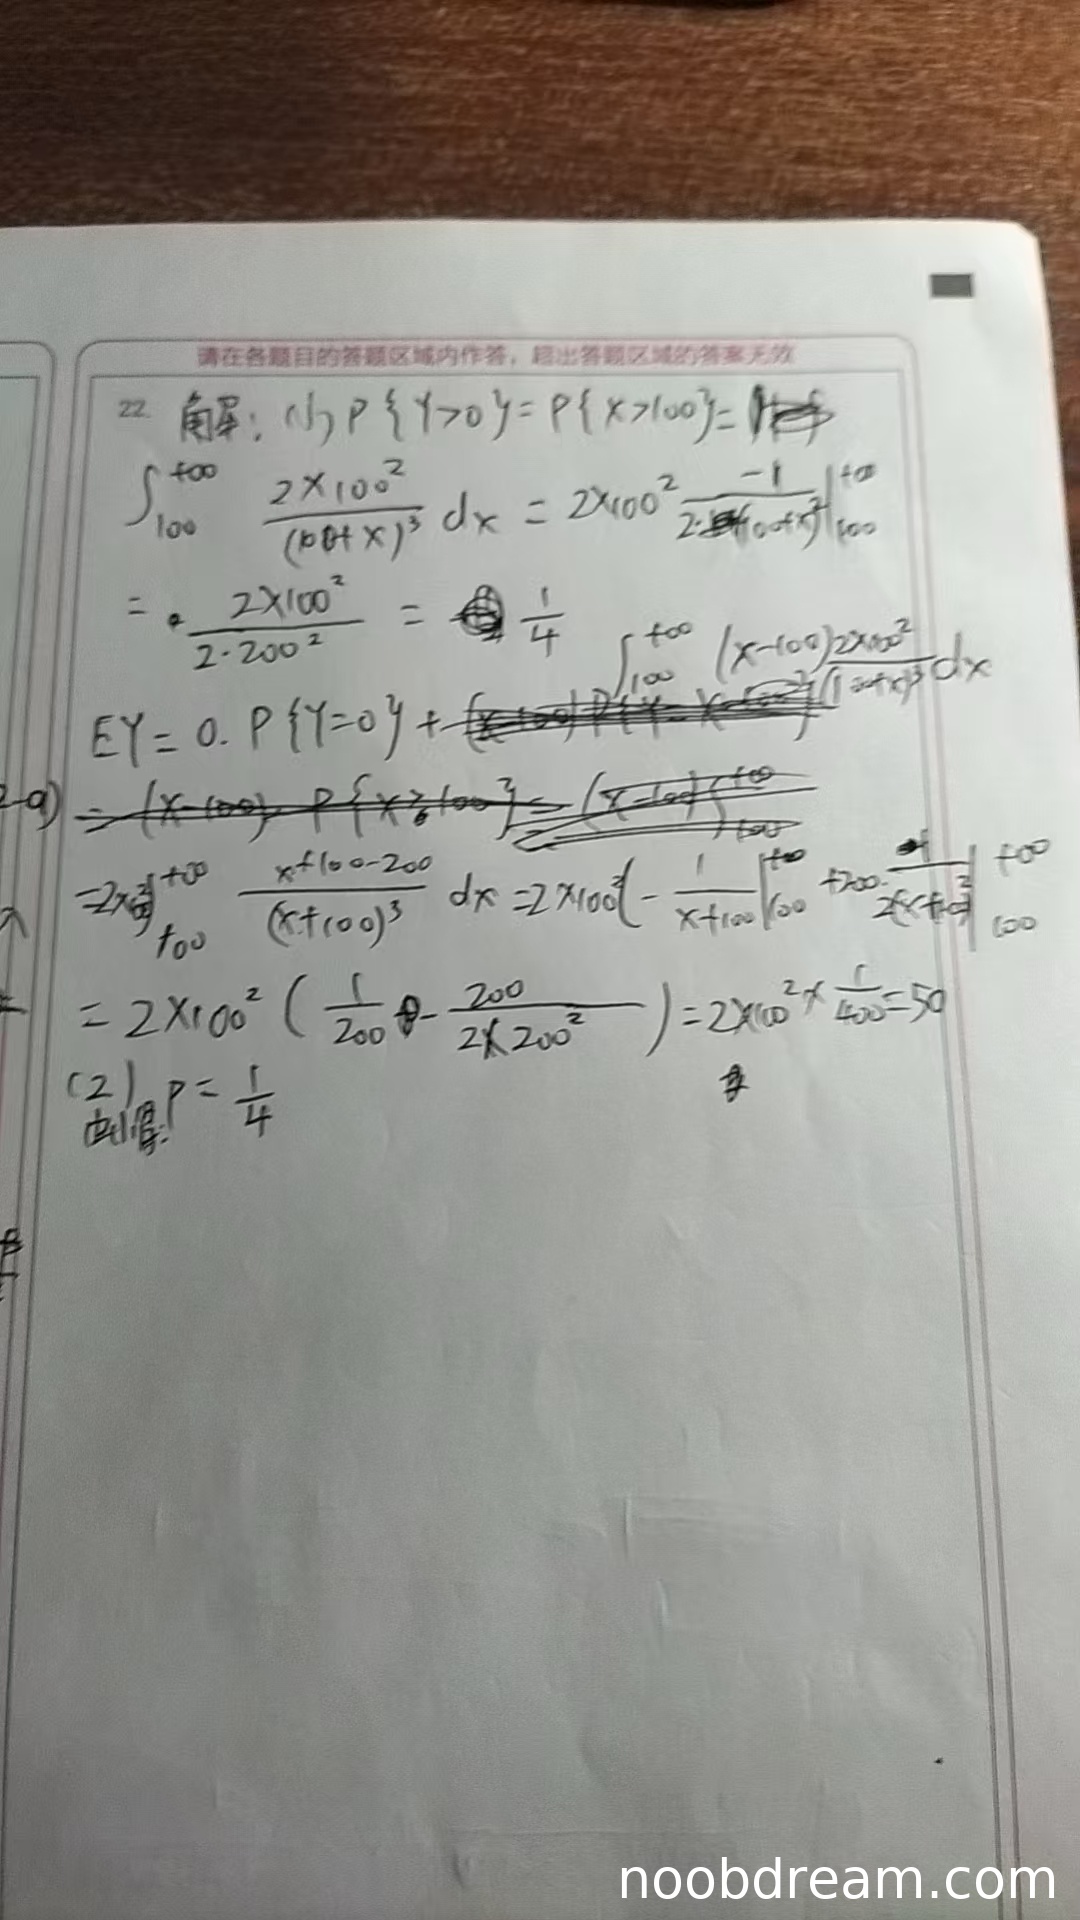 请在各题目的答题区域内作答，超出答题区域的答案无效
22. 解: (1) P{Y>0}=P{X>100}=
∫_100^{+∞} 2×100²/(100+x)³ dx = 2×100² -1/(2·(100+x)²) |_100^{+∞}
= 2×100²/(2·200²) = 1/4
EY = 0·P{Y=0}+ ∫_100^{+∞} (x-100) 2×100²/(100+x)³ dx
=2×100² ∫_100^{+∞} (x+100-200)/(x+100)³ dx =2×100²( - 1/(x+100) |_100^{+∞} +200· 1/(2(x+100)²) |_100^{+∞}
= 2×100² ( 1/200 - 200/(2×200²) ) = 2×100² × 1/400 = 50
(2) 由(1)得: P = 1/4
noobdream.com